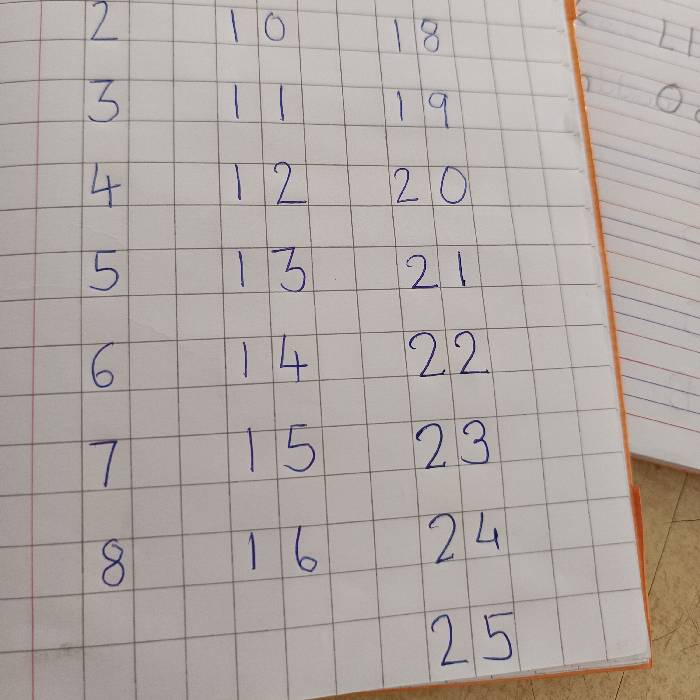 2 10 18
3 11 19
4 12 20
5 13 21
6 14 22
7 15 23
8 16 24
25